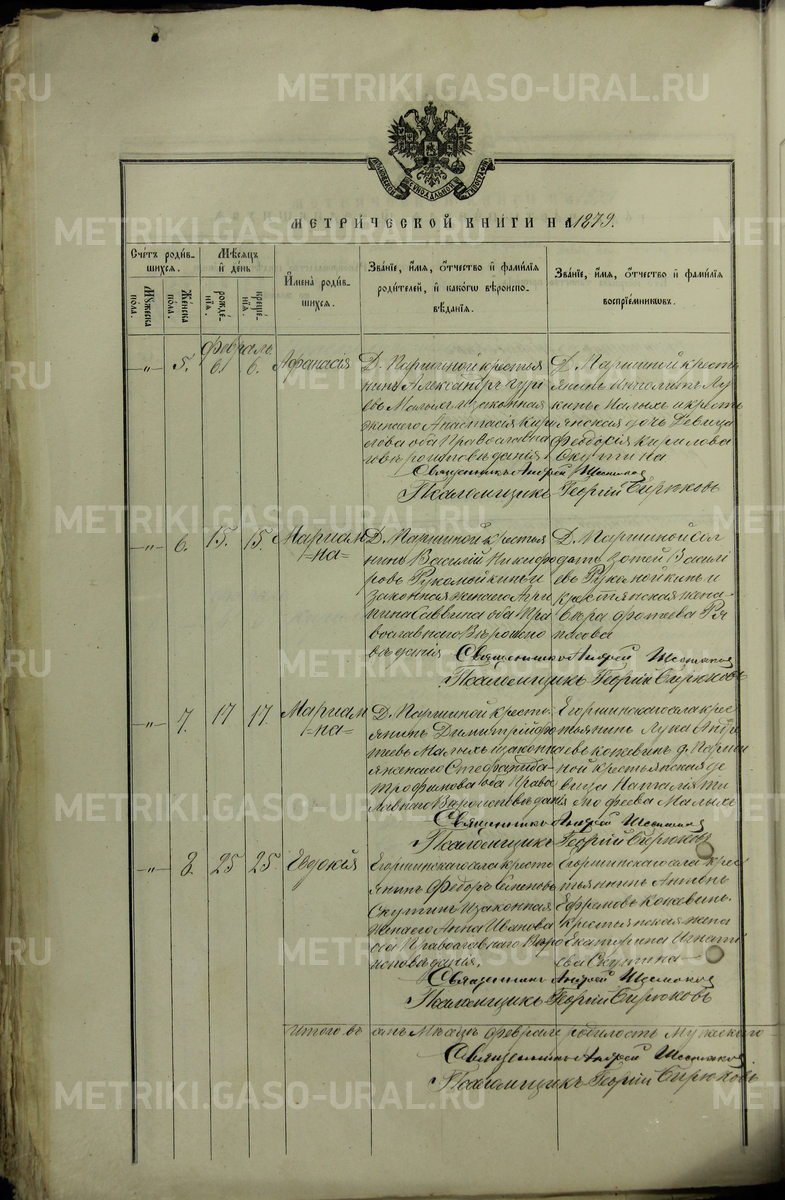 METRIKI.GASO-URAL.RU
МОСКОВСКОЙ СѴНОДАЛЬНОЙ ТИПОГРАФІИ
МЕТРИ́ЧЕСКОЙ КНИГИ НА 1879.
Сче́тъ роди́в-
шихся.
Му́жеска пола.
Же́нска пола.
Мѣ́сяцъ
и҆ де́нь
рожде́-
нїѧ.
креще́-
нїѧ.
И҆мена̀ роди́в-
шихся.
Зва́нїе, и҆́мѧ, ѻ҆́тчество и҆ фамѝлїѧ
роди́телей, и҆ како́гѡ вѣроиспо-
вѣ́данїѧ.
Зва́нїе, и҆́мѧ, ѻ҆́тчество и҆ фамѝлїѧ
воспрїе́мникѡвъ.
Февраль
—„— 5. 6. 6. Афанасія
Д. Паршиной крестья
нинъ Александръ Гурі
евъ Малыхъ и законная
жена его Анастасія Кири
лова оба Православна
го вѣроисповѣданія
Д. Паршиной кресть
янинъ Лу
кинъ Малыхъ и кресть
янская дочь девица
Феодосія Кирилова
Скутина
Священникъ Андрей Шестаков
Псаломщикъ Георгій Бирюковъ
—„— 6. 15. 15. Мариам
=на=
Д. Паршиной крестья
нинъ Василій Никифо
ровъ Рукомойкинъ и
законная жена его Агри
пина Саввина оба Пра
вославнаго Вѣроиспо
вѣданія
Д. Паршиной сол
датъ Зотей Василі
евъ Рукомойкинъ и
крестьянская жена
Фотеева Ря
посова
Священникъ Андрей Шестаков
Псаломщикъ Георгій Бирюковъ
—„— 7. 17 17. Мариам
=на=
Д. Паршиной кресть
янинъ Димитрій Фо
тѣевъ Малыхъ и законна
я жена его Стефанида
Трофимова оба Право
славнаго Вѣроисповѣданія
Егоршинскаго села крес
тьянинъ Лука Андре
евъ Коневинъ д. Парши
ной крестьянская де
вица Наталія Ти
мофеева Малыхъ
Священникъ Андрей Шестаков
Псаломщикъ Георгій Бирюковъ
—„— 8. 25 25. Евдокія
Егоршинскаго села кресть
янинъ Федоръ Семеновъ
Скутинъ и законная
жена его Анна Иванова
оба Православнаго Вѣро
исповѣданія.
Егоршинскаго села крес
тьянинъ
Ефремовъ Коневинъ.
крестьянская жена
Екатерина Игнаті
ева Скутина
Священникъ Андрей Шестаков
Псаломщикъ Георгій Бирюковъ
Итого въ Мѣсяцѣ Февралѣ родилось Мужескаго —
Священникъ Андрей Шестаков
Псаломщикъ Георгій Бирюковъ